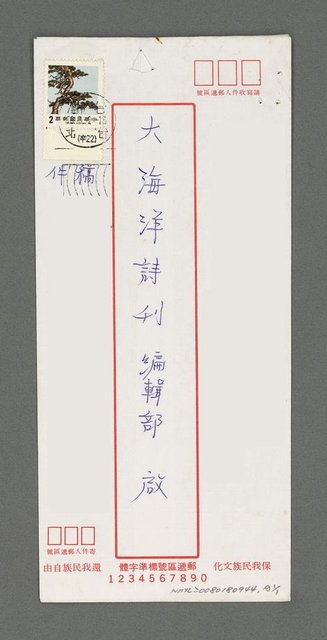 號區遞郵人件收寫請
2 票郵國民華中
北
(中22)
稿件
大海洋詩刊編輯部 啟
號區遞郵人件寄
由自族民我還 體字準標號區遞郵 化文族民我保
1234567890
NMTL20080180944